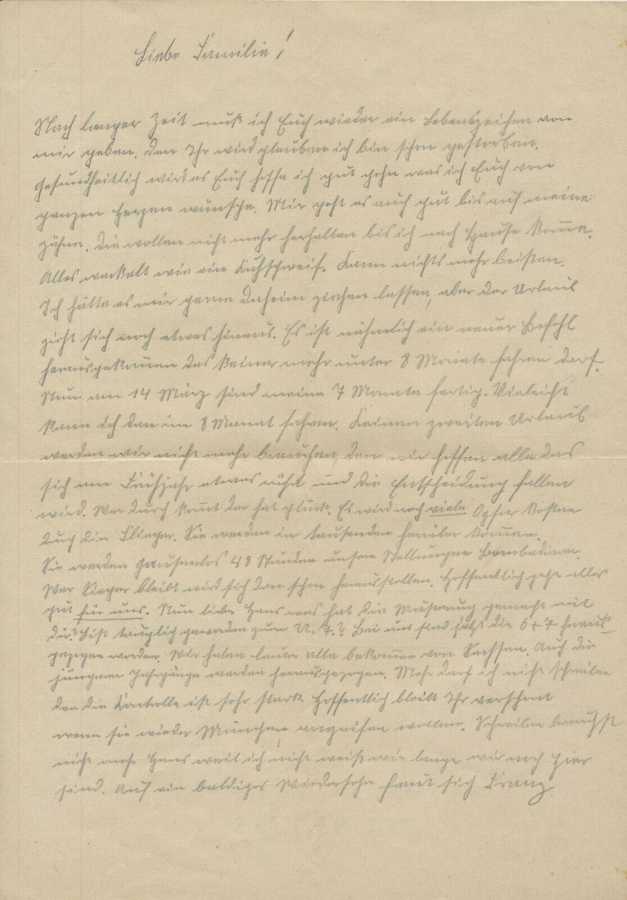 Liebe Familie!
Nach langer Zeit muß ich Euch wieder ein Lebenszeichen von
mir geben. den Ihr wird glauben ich bin schon gestorben.
Gesundheitlich wird es Euch hoffe ich gut gehn was ich Euch von
ganzen Herzen wünsche. Mir geht es auch gut bis auf meine
Zähne. Die wollen nicht mehr herhalten bis ich nach Hause komme.
Alles wackelt wie ein Kuhschweif. Kann nichts mehr beißen.
Ich hätte es mir gerne daheim machen lassen, aber der Urlaub
zieht sich noch etwas hinaus. Es ist nähmlich ein neuer Befehl
herausgekommen das keiner mehr unter 8 Monate fahren darf.
Nun am 14 März sind meine 7 Monate fertig. Vieleicht
kann ich dan im 8 Monat fahren. Keinen zweiten Urlaub
werden wir nicht mehr brauchen den wir hoffen alle das
sich am Frühjahr etwas rührt und die Entscheidung fallen
wird. Wer durch kommt der hat glück. Es wird noch viele Opfer kosten
durch die Flieger. Sie werden in tausenden herüber kommen.
Sie werden pausenlos 48 Stunden unsere Stellungen bombadieren.
Wer Sieger bleibt wird sich dan schon herausstellen. Hoffentlich geht alles
gut für uns. Nun liebe Hans was hat die Musterung gemacht mit
dir? Bist tauglich geworden zum Bei uns sind jetzt die heraus-
gezogen worden. Wir haben lauter alte bekommen von Sachsen. Auch die
jüngeren Jahrgänge werden herausgezogen. Mehr darf ich nicht schreiben
den die Kontrolle ist sehr stark. Hoffentlich bleibt Ihr verschont
wenn sie wieder München angreifen wollen. Schreiben brauchst
nicht mehr Hans weil ich nicht weiß wie lange wir noch hier
sind. Auf ein baldiges Wiedersehn freut sich Franz